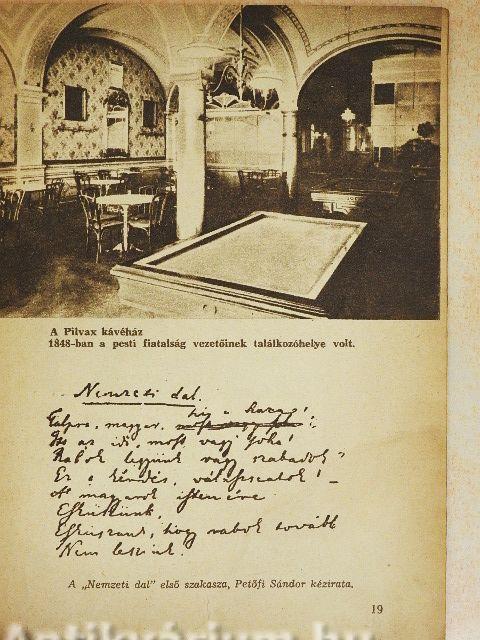 A Pilvax kávéház
1848-ban a pesti fiatalság vezetőinek találkozóhelye volt.
Nemzeti dal.
hí a haza!
Talpra, magyar,
Itt az idő, most vagy soha!
Rabok legyünk vagy szabadok?
Ez a kérdés, válasszatok! –
A' magyarok istenére
Esküszünk,
Esküszünk, hogy rabok tovább
Nem leszünk!
A „Nemzeti dal” első szakasza, Petőfi Sándor kézirata.
19
Antikvárium.hu